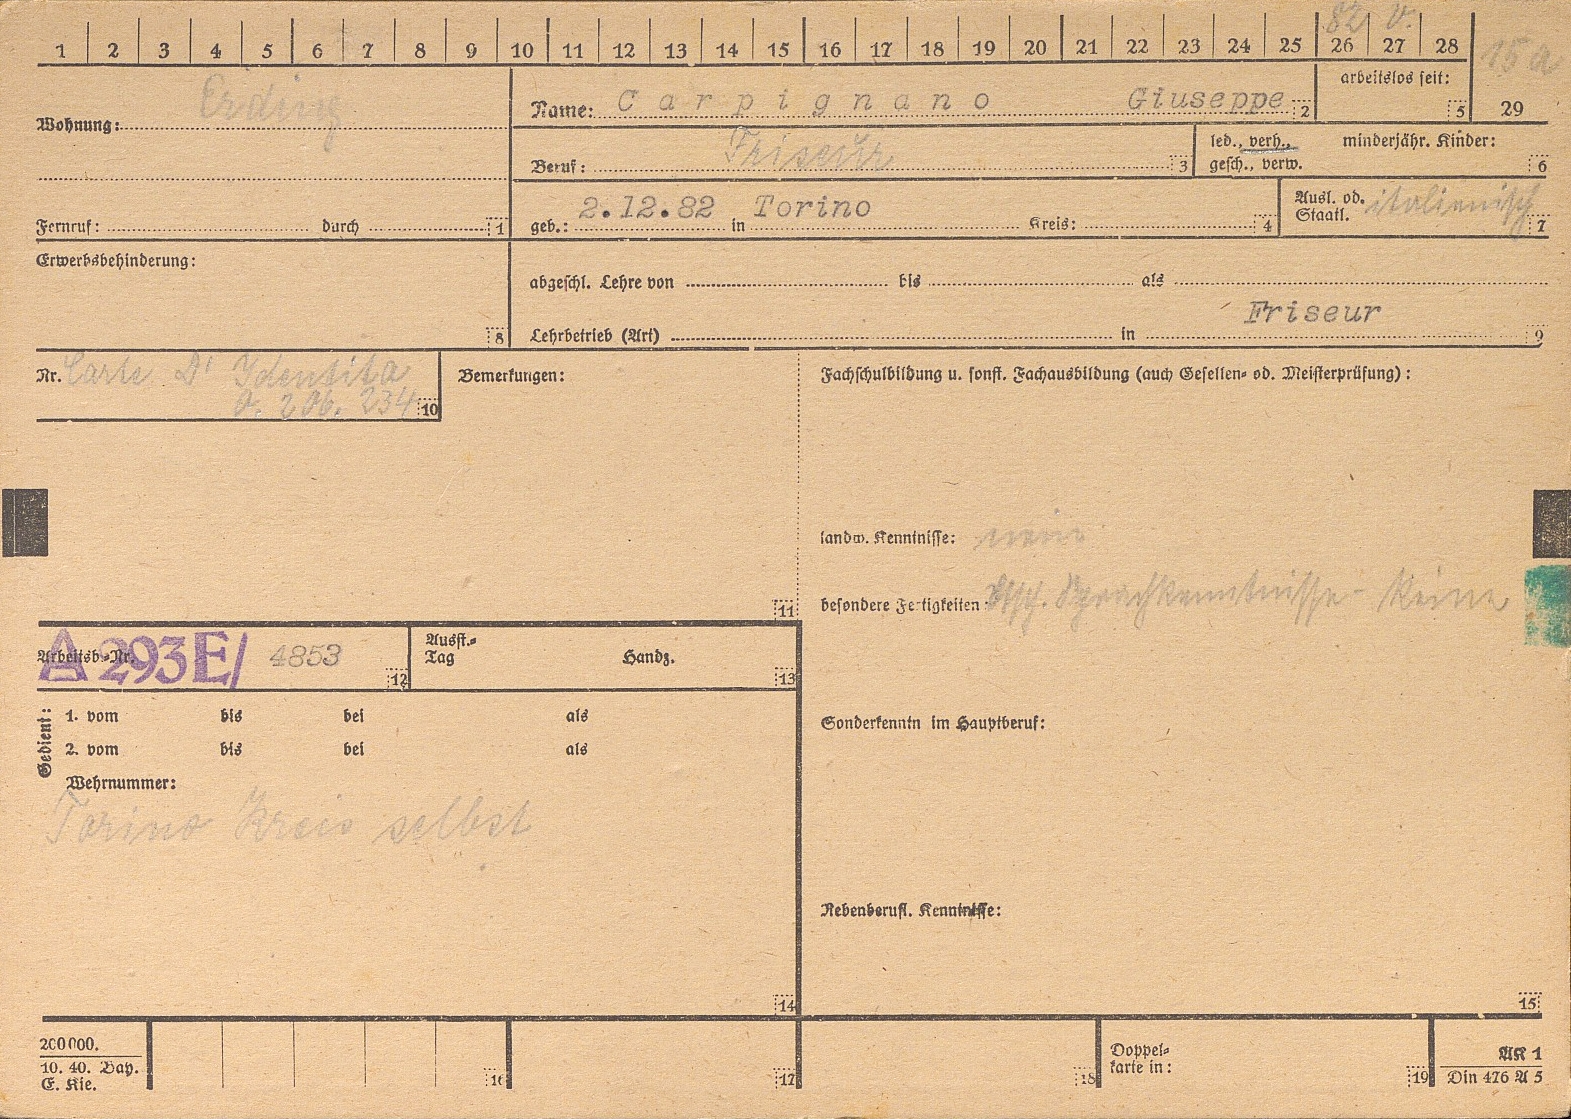 82 V.
1 2 3 4 5 6 7 8 9 10 11 12 13 14 15 16 17 18 19 20 21 22 23 24 25 26 27 28
15 a
29
Erding
Wohnung:
Name: Carpignano Giuseppe 2
arbeitslos seit: 5
Beruf: Friseur 3
led., verh., minderjähr. Kinder:
gesch., verw. 6
Fernruf: durch 1
geb.: 2.12.82 in Torino Kreis: 4
Ausl. od. italienisch
Staatl. 7
Erwerbsbehinderung: 8
abgeschl. Lehre von bis als
Friseur
Lehrbetrieb (Art) in 9
Nr. Carte D' Identita
206. 234 10
Bemerkungen:
11
Fachschulbildung u. sonst. Fachausbildung (auch Gesellen- od. Meisterprüfung):
landw. Kenntnisse: nein
besondere Fertigkeiten Dtsch. Sprachkenntnisse - keine
Arbeitsb.-Nr. A 293E/ 4853 12
Ausst.-
Tag Handz. 13
Gedient:
1. vom bis bei als
2. vom bis bei als
Wehrnummer:
Torino Kreis selbst
14
Sonderkenntn im Hauptberuf:
Nebenberufl. Kenntnisse:
15
200000.
10. 40. Bay.
E. Kie.
16
17
18
Doppel-
karte in:
19
AK 1
Din 476 A 5